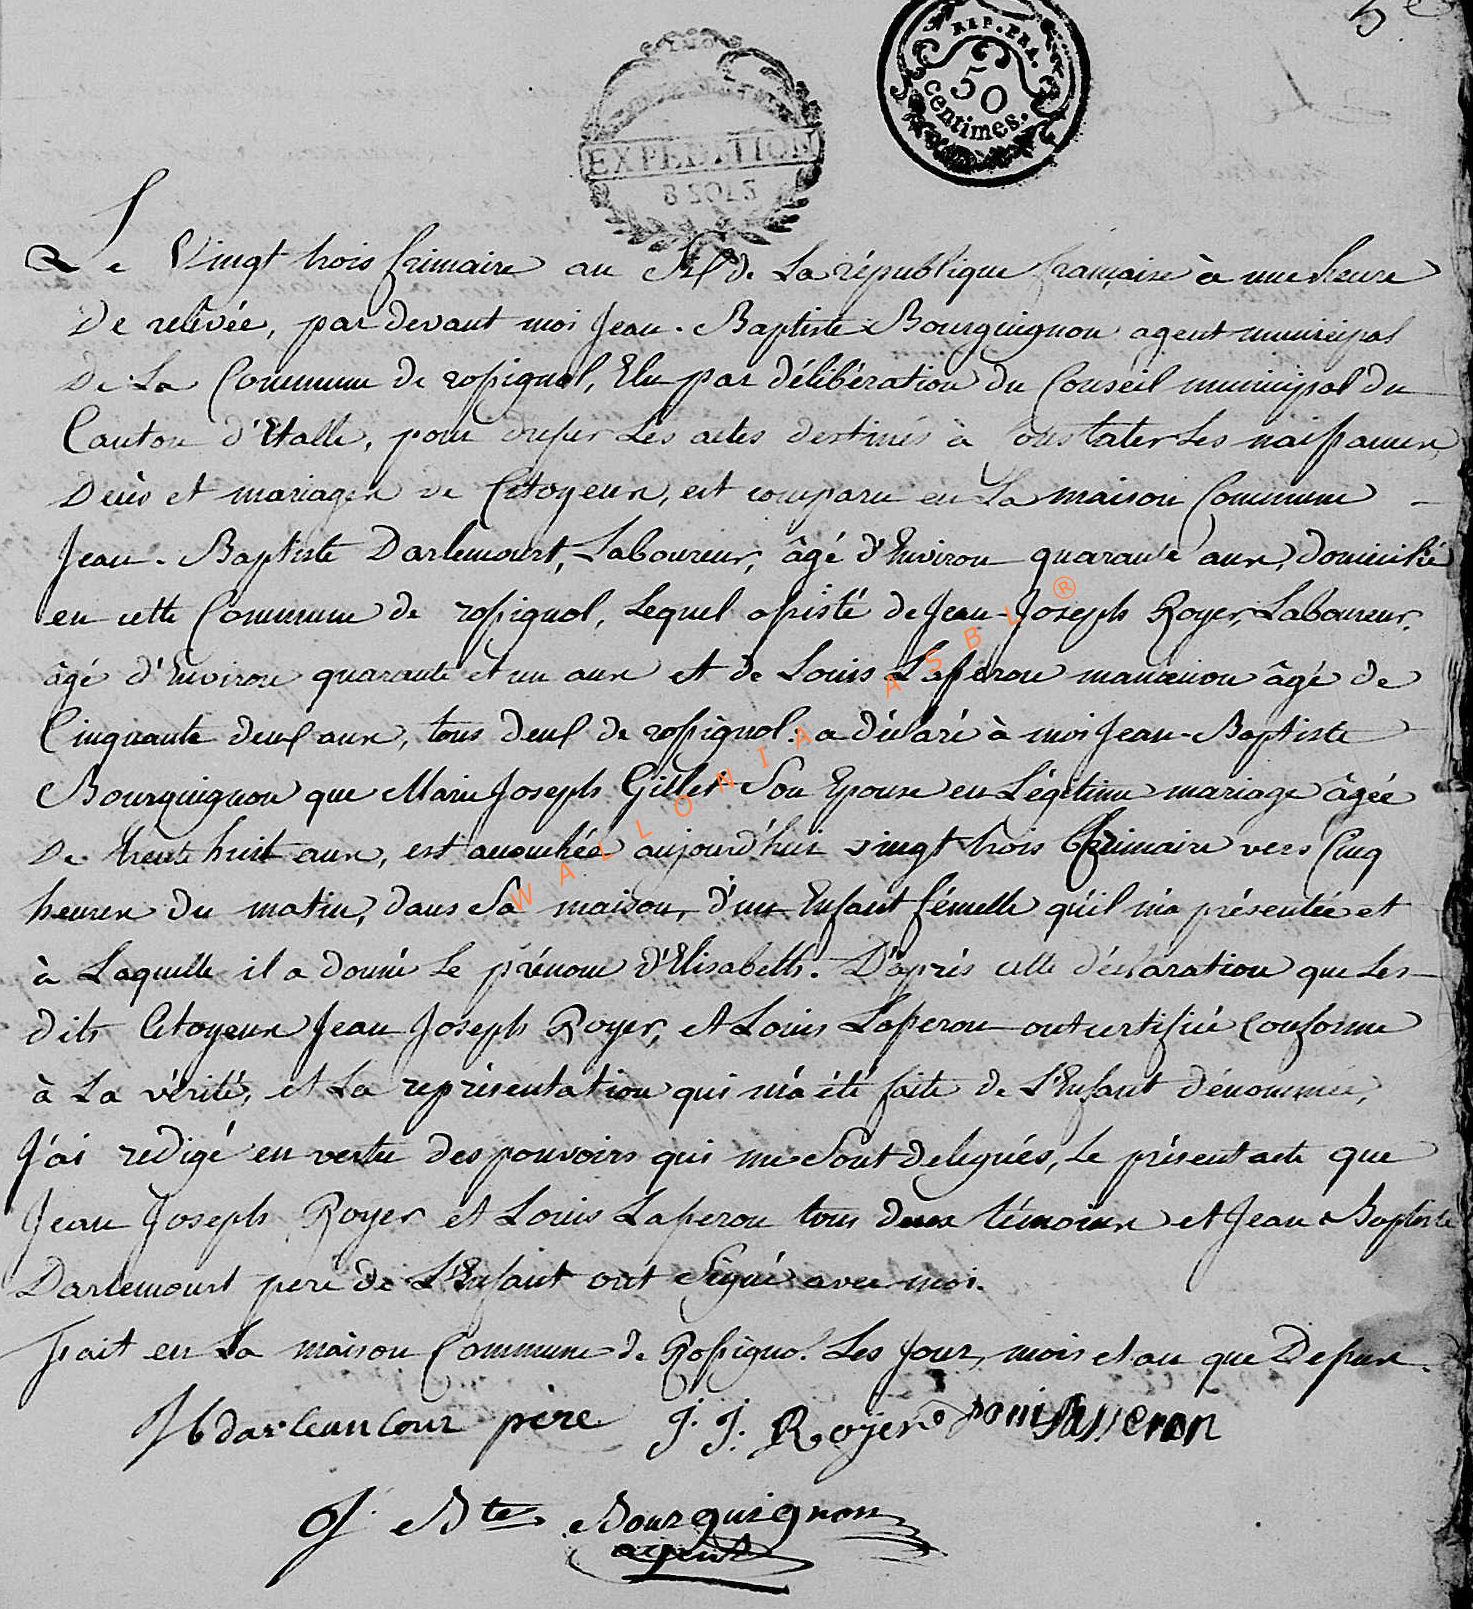 5e
REP. FRA.
50
centimes.
EXPEDITION
Le Vingt trois frimaire an Six de la république française à une heure
De relevée, par devant moi Jean-Baptiste Bourguignon agent municipal
De La Commune de rossignol, Elu par délibération du Conseil municipal du
Canton d'Etalle, pour dresser Les actes destinés à Constater Les naissances,
Décès et mariages de Citoyens, est comparu en La maison Commune
Jean-Baptiste Darlemourt, Laboureur, âgé d'Environ quarante ans, domicilié
en cette Commune de rossignol, Lequel assisté de Jean-Joseph Royer, Laboureur,
âgé d'Environ quarante et un ans et de Louis Lasseron manœuv âgé de
Cinquante deux ans, tous deux de rossignol: a déclaré à moi Jean-Baptiste
Bourguignon que Marie Joseph Gillet Son Epouse en Légitime mariage âgée
De trente huit ans, est accouchée aujourd'hui vingt trois frimaire vers Cinq
heures du matin, dans Sa maison, d'un Enfant fémelle qu'il m'a présentée et
à Laquelle il a donné Le prénom d'Elisabeth. D'après cette déclaration que Les
dits Citoyens Jean Joseph Royer, et Louis Lasseron ont certifié Conforme
à La vérité, et La représentation qui m'a été faite de L'Enfant dénommée,
J'ai redigé en vertu des pouvoirs qui me Sont delegués, Le présent acte que
Jean Joseph Royer et Louis Lasseron tous deux témoins et Jean Baptiste
Darlemourt pere de L'Enfant ont Signé avec moi.
Fait en La maison Commune de Rossignol Les Jour, mois et an que Dessus.
père J. J. Royer Louis Lasseron
J. Bte Bourguignon
agent
WALLONIA ASBL ®